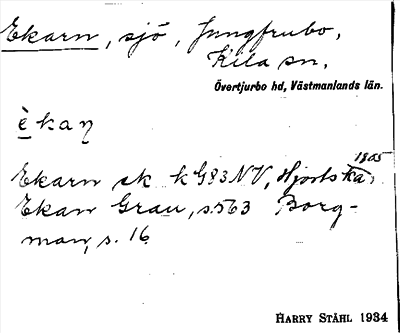 Ekarn, sjö, Jungfrubo,
Kila sn,
Övertjurbo hd, Västmanlands län.
èkaƞ
1805
Ekarn sk k G83NV, Hjortska,
Ekan Grau, s. 563 Borg-
man, s. 16
HARRY STÅHL 1934